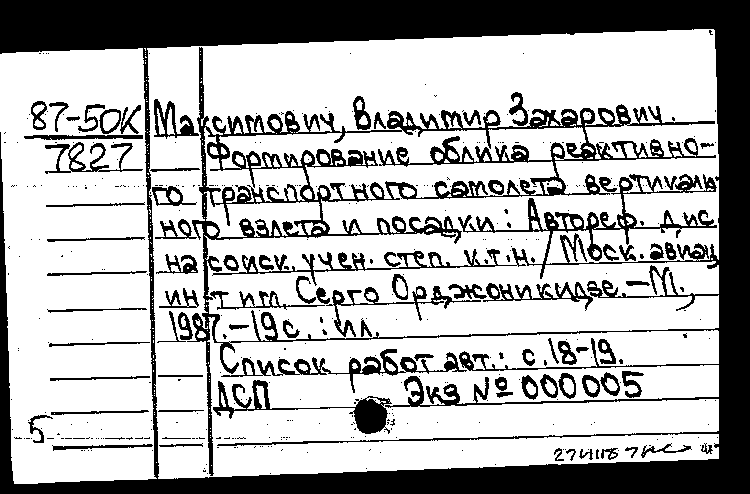 87-50К Максимович, Владимир Захарович.
7827 Формирование облика реактивно-
го транспортного самолета вертикаль
ного взлета и посадки : Автореф. дис.
на соиск. учен. степ. к.т.н. / Моск. авиац
ин-т им. Серго Орджоникидзе. – М.,
1987. – 19 с. : ил.
Список работ авт.: с. 18-19.
ДСП Экз № 000005
5